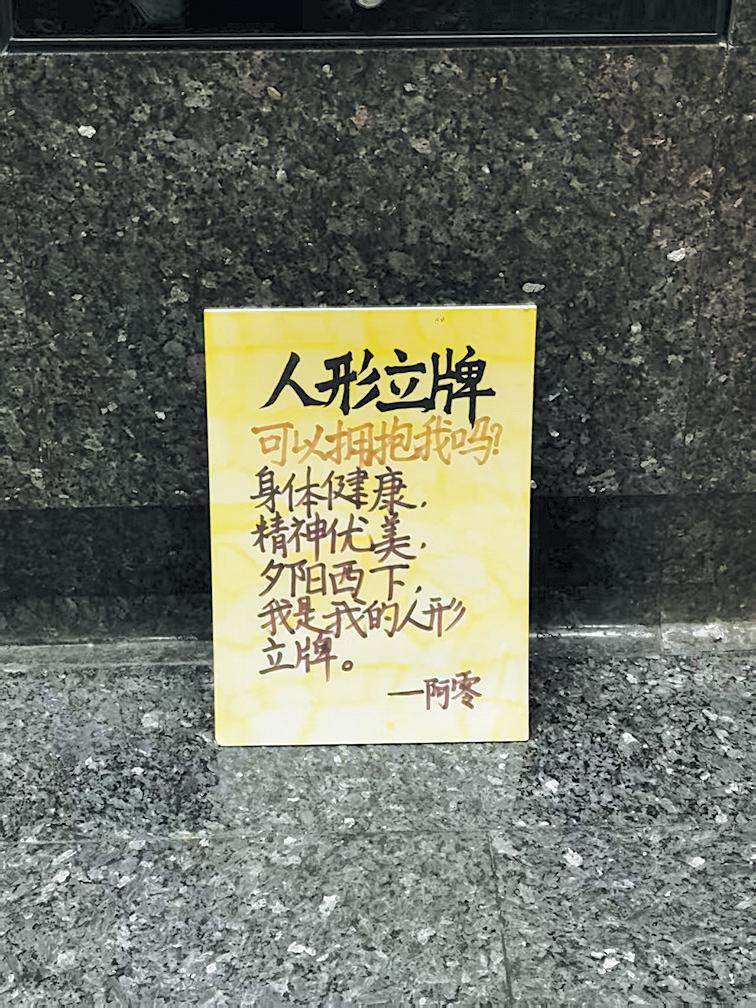 人形立牌
可以拥抱我吗?
身体健康,
精神优美,
夕阳西下,
我是我的人形
立牌。
—阿零